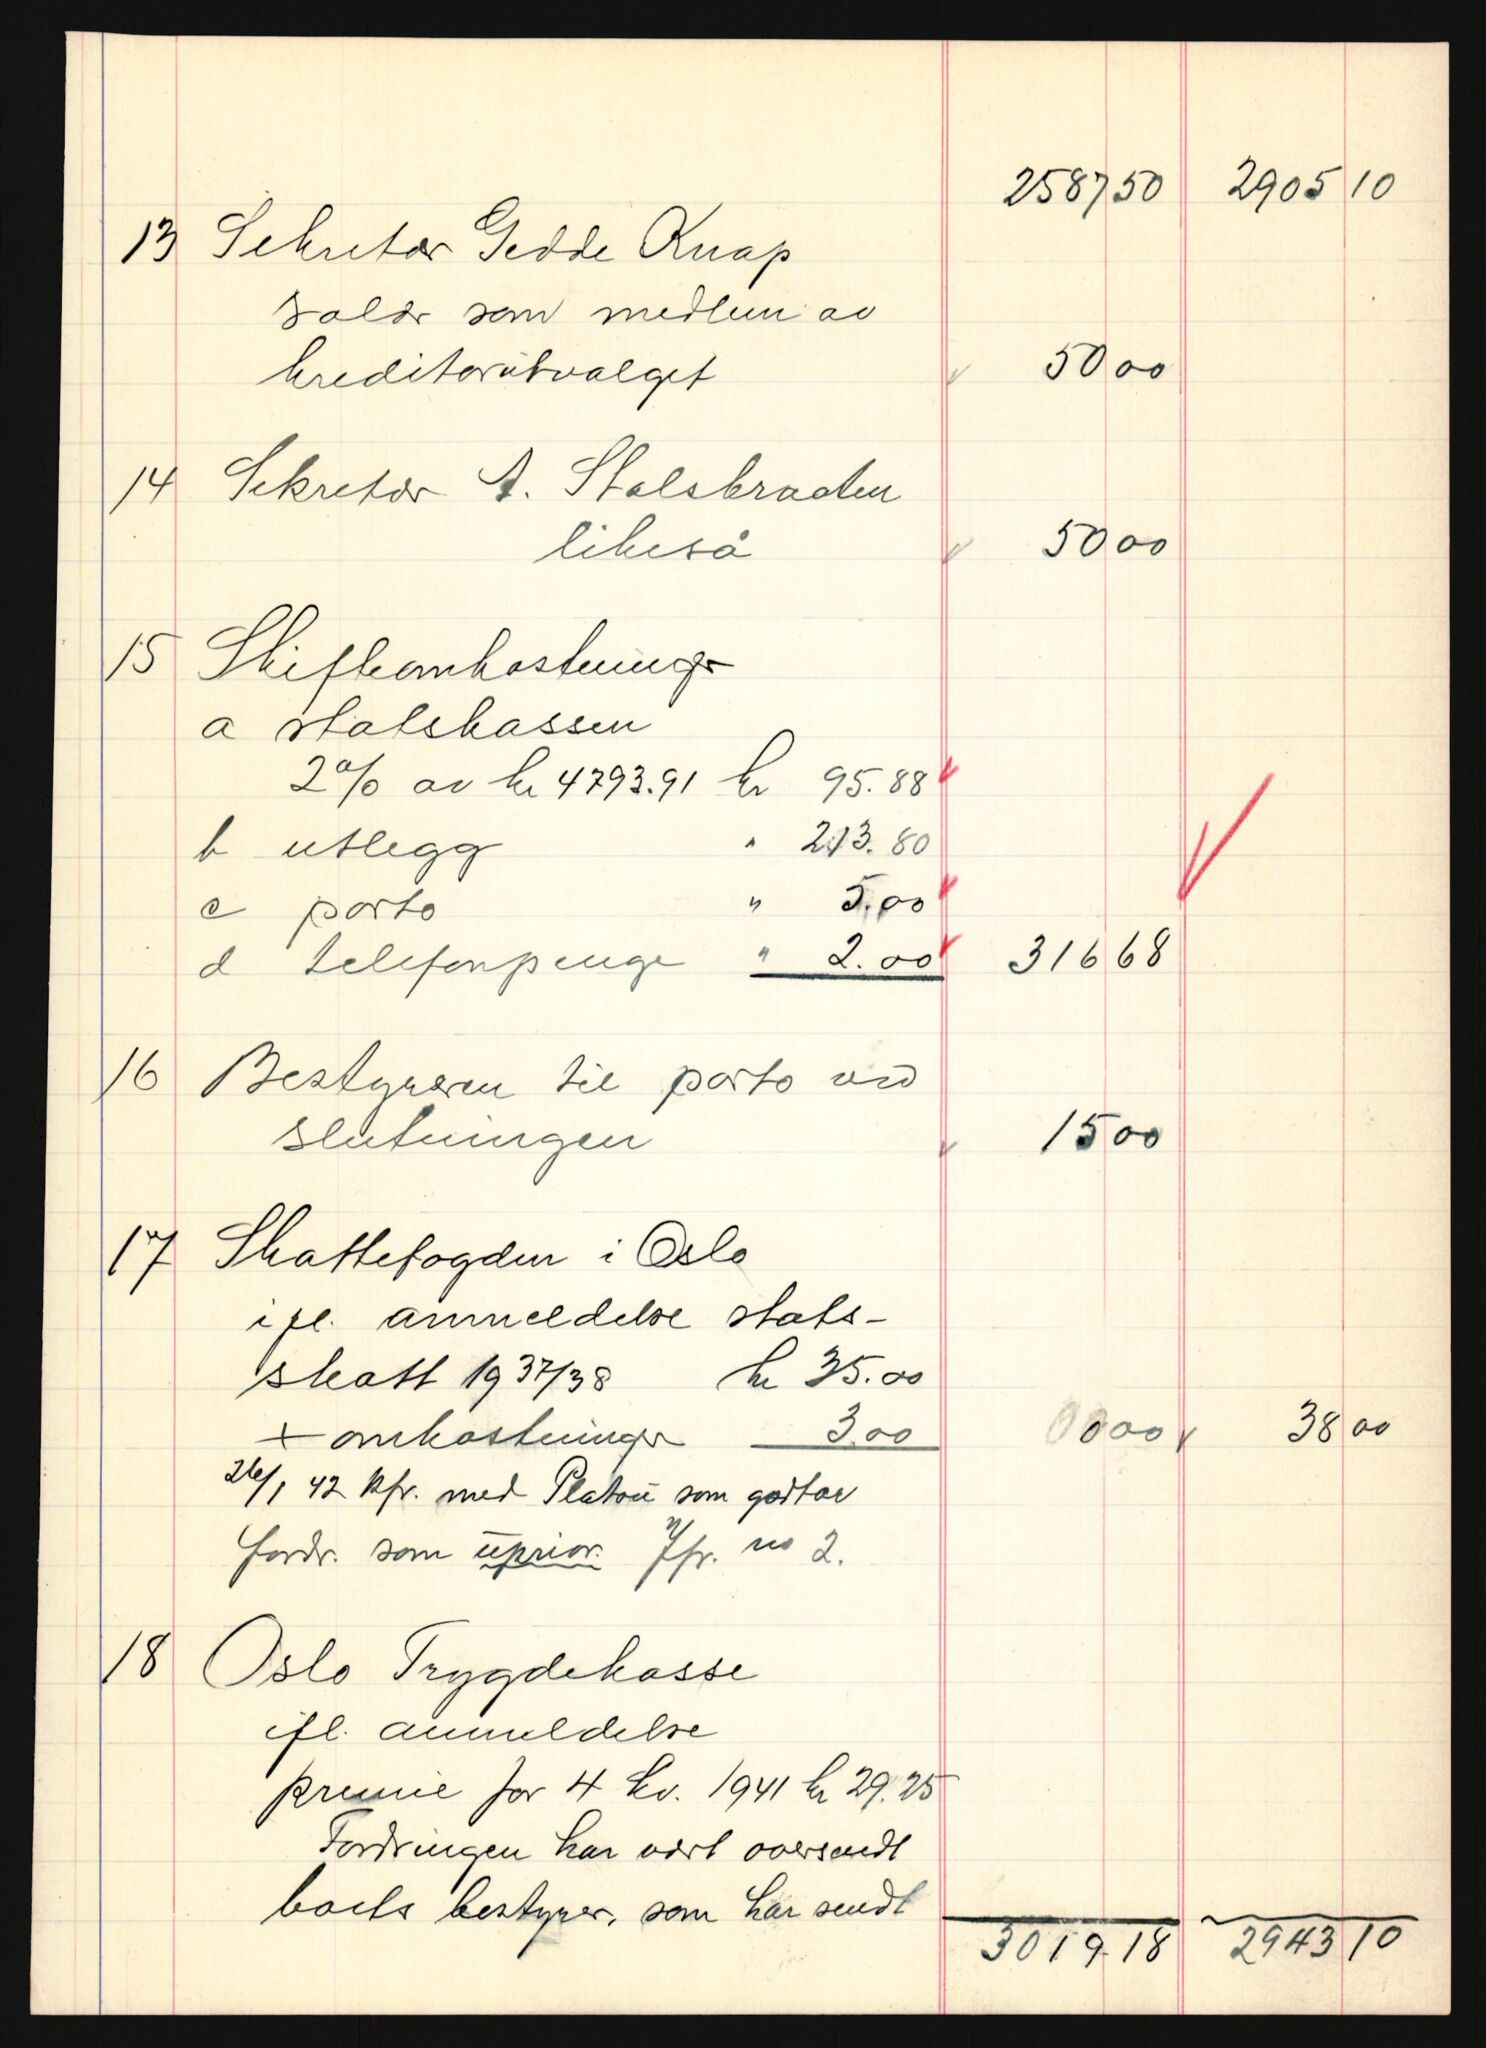 2587 50 2905 10
13 Sekretær Gedde Knap
salær som medlem av
kreditorutvalget 50 00
14 Sekretær A. Stalsbraaten
likeså 50 00
15 Skifteomkostninger
a statskassen
2% av kr 4793.91 kr 95.88
b utlegg " 213.80
c porto " 5.00
d telefonpenge " 2.00 316 68
16 Bestyreren til porto ved
slutningen 15 00
17 Skattefogden i Oslo
ifl. anmeldelse stats-
skatt 1937/38 kr 35.00
+ omkostninger 3.00 00 00 38 00
26/1 42 kfr. med Platou som godtar
fordr. som uprior. Jfr. no 2.
18 Oslo Trygdekasse
ifl. anmeldelse
premie for 4 kv. 1941 kr 29.25
Fordringen har vært oversendt
boets bestyrer, som har sendt
3019.18 2943 10